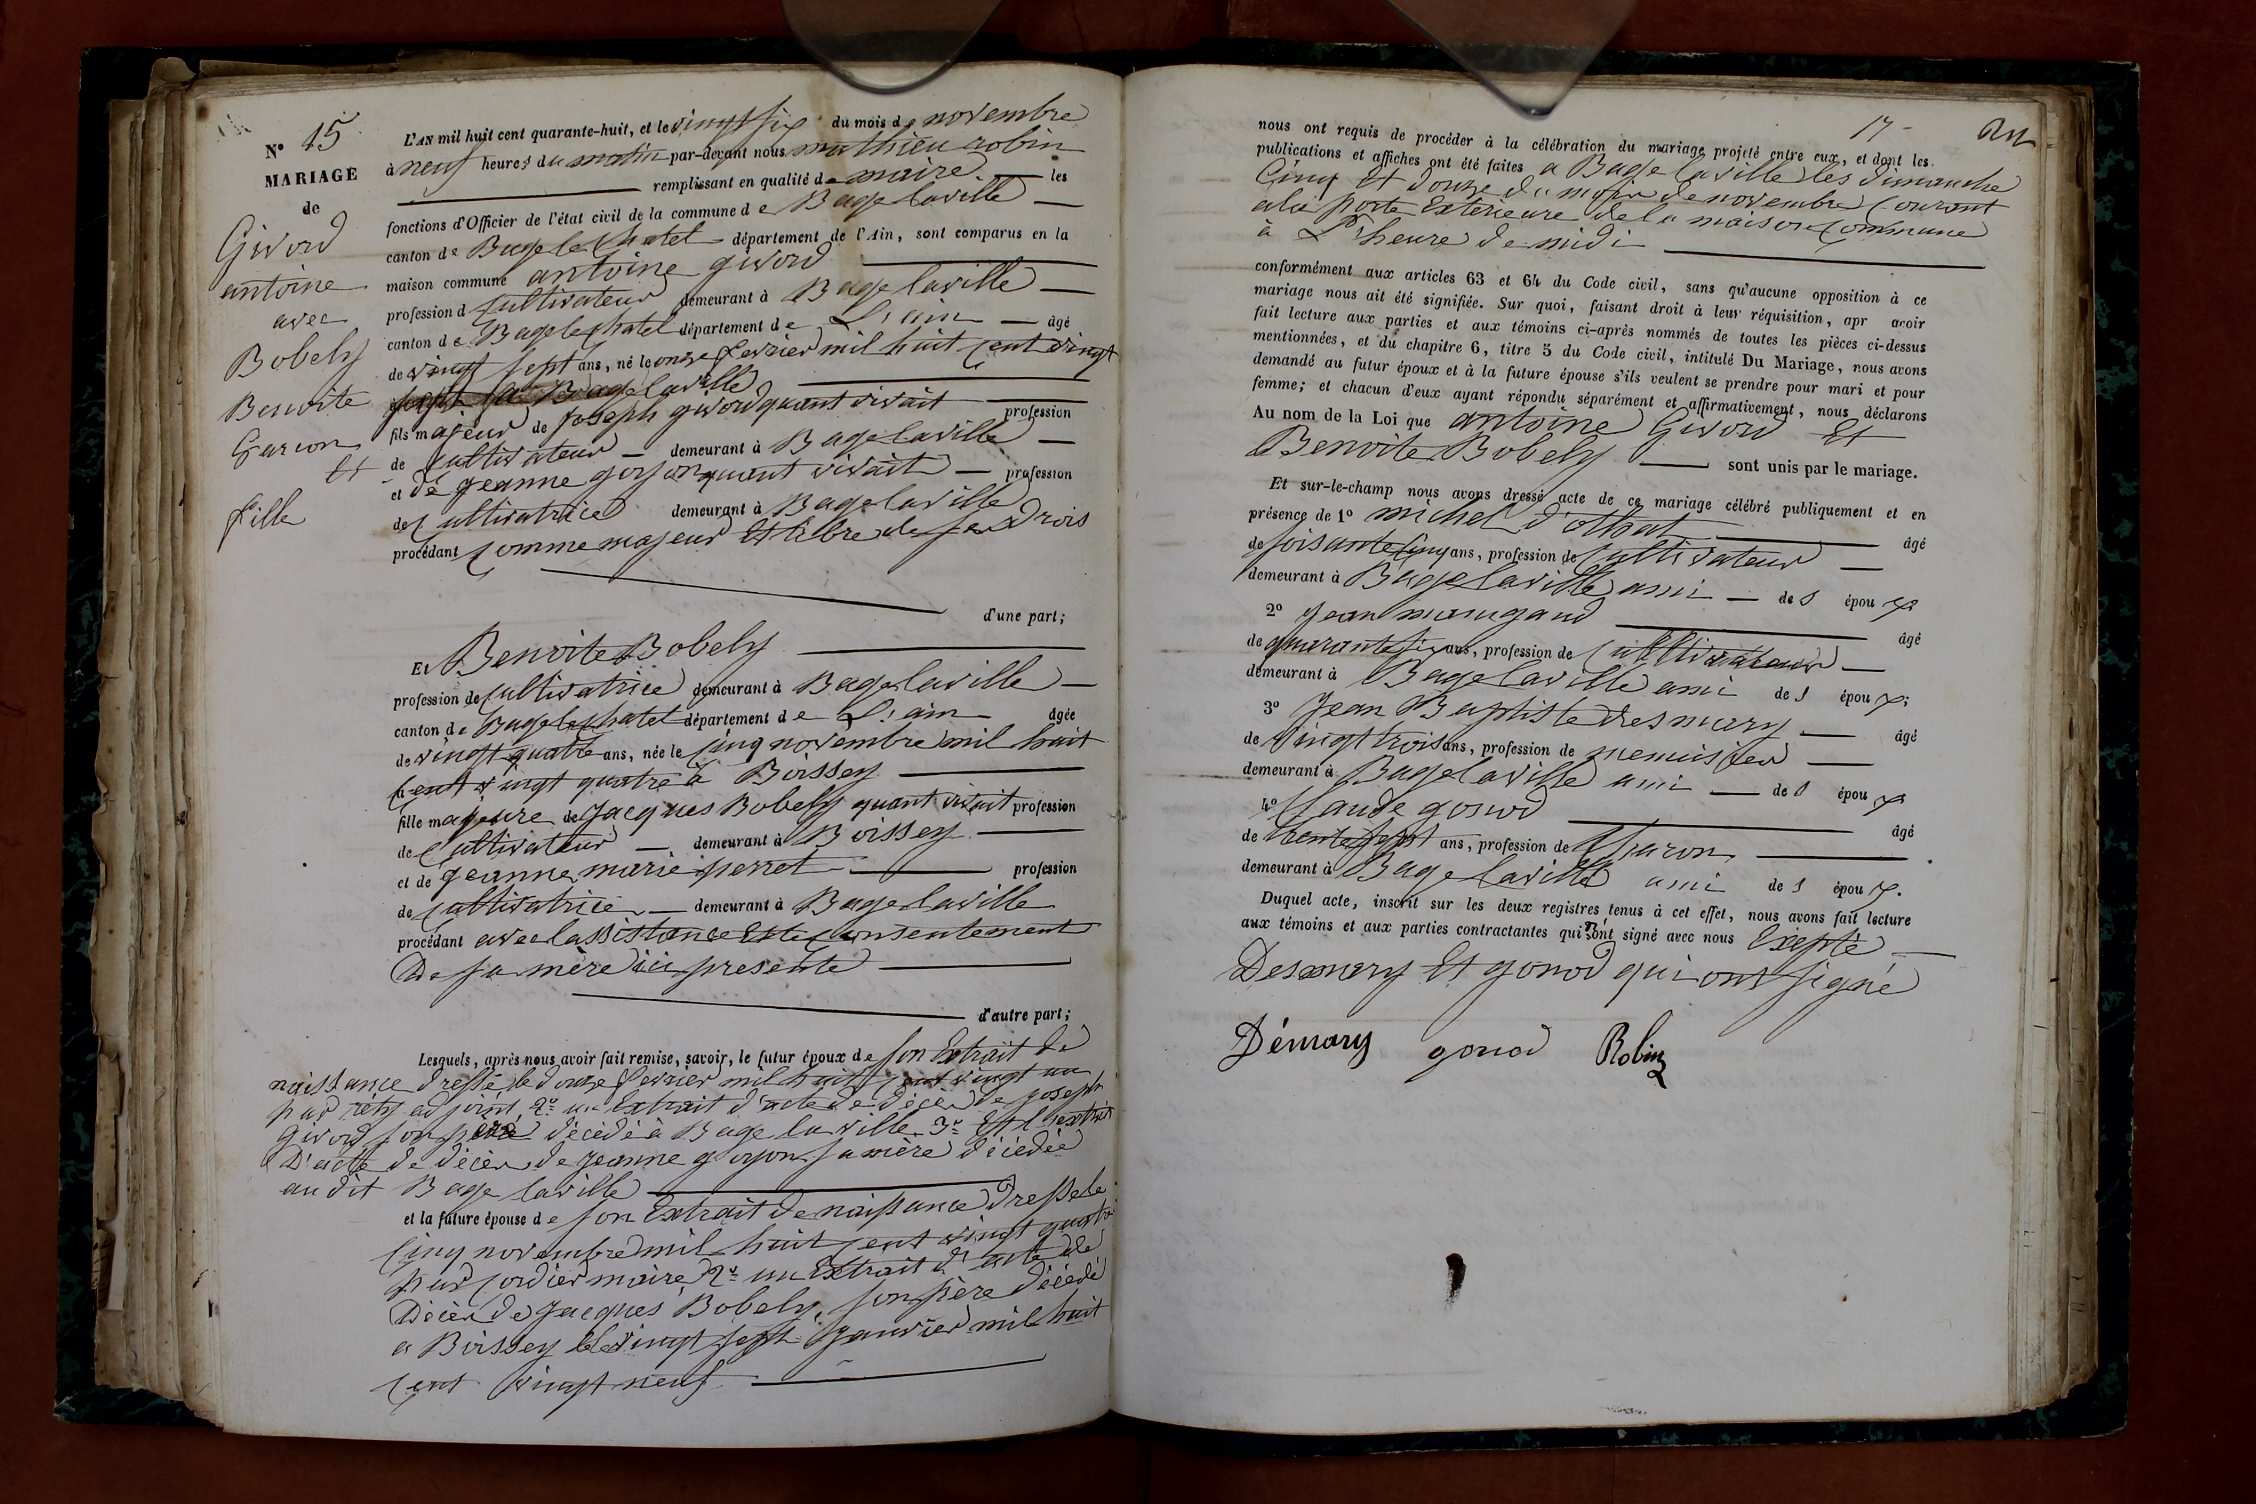 Nº 15
MARIAGE
de
Givord
antoine
avec
Bobely
Benoite
Garcon
Et
fille
L'AN mil huit cent quarante-huit, et le vingt six du mois de novembre
à neuf heures du matin par-devant nous mathieu robin
remplissant en qualité de maire les
fonctions d'Officier de l'état civil de la commune de Bage laville
canton de Bage le Chatel département de l'Ain, sont comparus en la
maison commune antoine givord
profession d Cultivateur demeurant à Bage laville
canton de Bage le Chatel département de L'ain âgé
de vingt sept ans, né le onze fevrier mil huit Cent vingt
à Bage laville
fils majeur de Joseph givord quant vivait profession
de Cultivateur demeurant à Bage laville
et de jeanne goyon quant vivait profession
de Cultivatrice demeurant à Bage laville
procédant Comme majeur Et libre de ses Drois
d'une part;
Et Benoite Bobely
profession de Cultivatrice demeurant à Bage laville
canton de Bage le Chatel département de L'ain âgée
de vingt quatre ans, née le Cinq novembre mil huit
Cent vingt quatre à Boissey
fille majeure de Jacques Bobely quant vivait profession
de Cultivateur demeurant à Boissey
et de jeanne marie perret profession
de Cultivatrice demeurant à Bage laville
procédant avec lassistance Et le Consentement
De sa mère ici presente
d'autre part;
Lesquels, après nous avoir fait remise, savoir, le futur époux de son Extrait de
naissance dressé le douze fevrier mil huit Cent vingt un
par adjoint, 2º un Extrait d'acte de décès de joseph
givord son père décédé à Bage laville 3º Et l'extrait
D'acte de décès de jeanne goyon sa mère décédée
au dit Bage laville
et la future épouse de son Extrait de naissance Dressé le
Cinq novembre mil huit Cent vingt quatre
par Cordier maire 2º un Extrait d'acte de
Décès de Jacques Bobely son père décédé
a Boissey le vingt sept janvier mil huit
Cent vingt neuf
17
nous ont requis de procéder à la célébration du mariage projeté entre eux, et dont les
publications et affiches ont été faites a Bage laville les dimanche
Cinq Et douze du mois de novembre Courant
ala porte Exterieure de la maison Commune
à L'heure de midi
conformément aux articles 63 et 64 du Code civil, sans qu'aucune opposition à ce
mariage nous ait été signifiée. Sur quoi, faisant droit à leur réquisition, apr avoir
fait lecture aux parties et aux témoins ci-après nommés de toutes les pièces ci-dessus
mentionnées, et du chapitre 6, titre 5 du Code civil, intitulé Du Mariage, nous avons
demandé au futur époux et à la future épouse s'ils veulent se prendre pour mari et pour
femme; et chacun d'eux ayant répondu séparément et affirmativement, nous déclarons
Au nom de la Loi que antoine Givord Et
Benoite Bobely sont unis par le mariage.
Et sur-le-champ nous avons dressé acte de ce mariage célébré publiquement et en
présence de 1º michel d'othat âgé
de soisante Cinq ans, profession de Cultivateur
demeurant à Bage laville ami des époux
2º jean mangaud âgé
de quarante six ans, profession de Cultivateur
demeurant à Bage laville ami des époux;
3º Jean Baptiste desmary âgé
de vingt trois ans, profession de menuisier
demeurant à Bage laville ami des époux
4º Claude gonod âgé
de trente sept ans, profession de Charon
demeurant à Bage laville ami des époux.
Duquel acte, inscrit sur les deux registres tenus à cet effet, nous avons fait lecture
aux témoins et aux parties contractantes qui n'ont signé avec nous Exepté
Desmary Et gonod qui ont signé
Démary gonod Robin